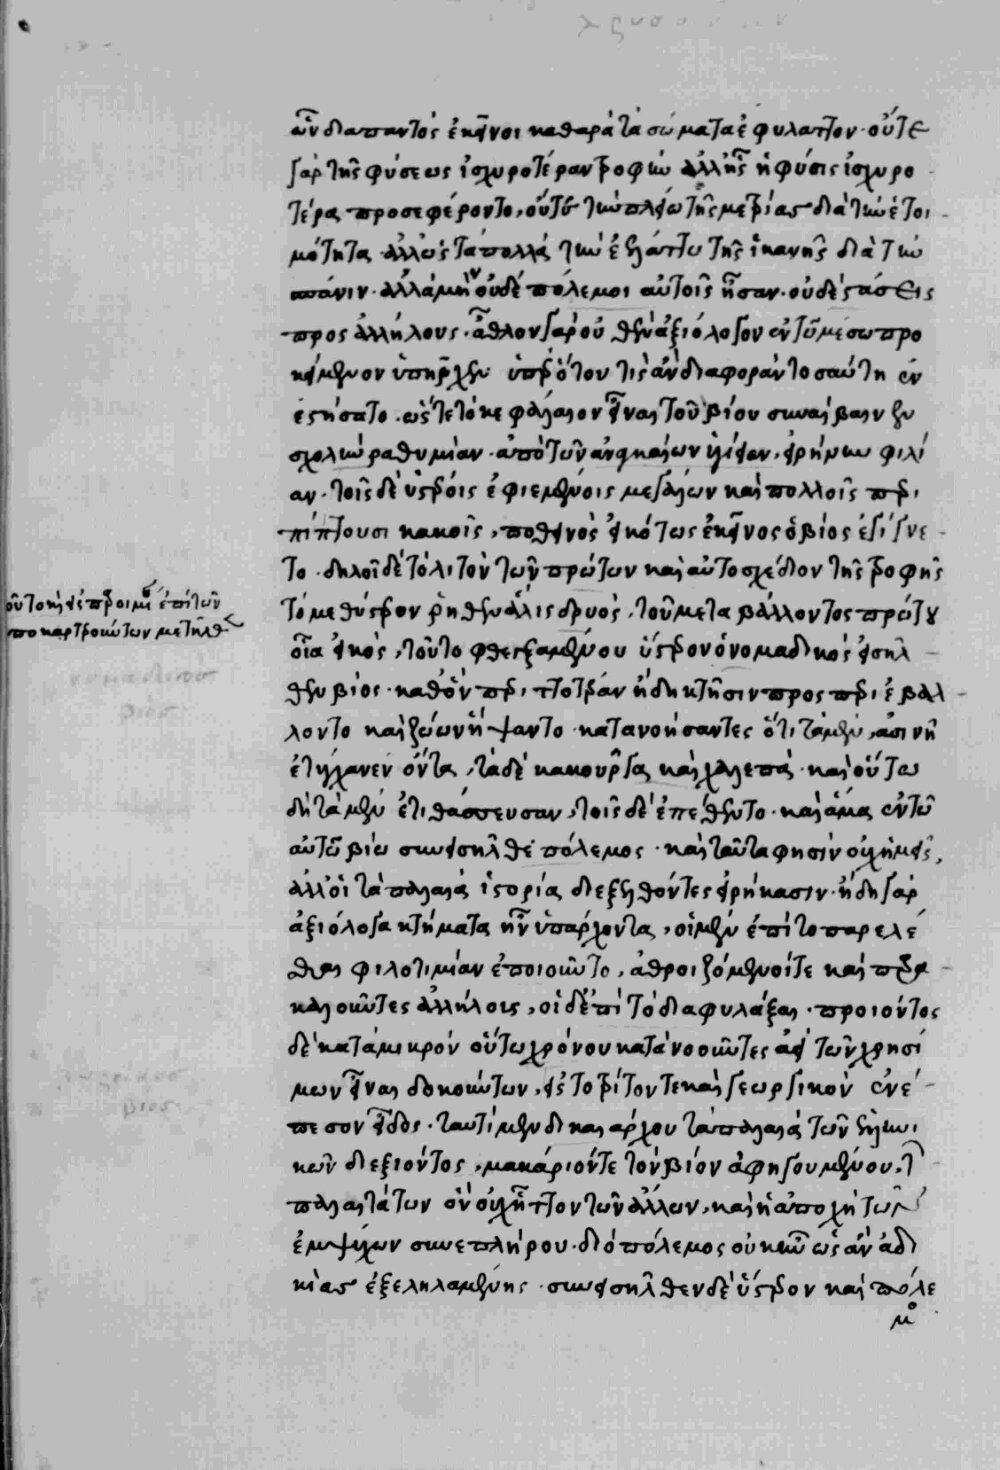 ὧν διαπαντὸς ἐκεῖνοι καθαρὰ τὰ σώματα ἐφύλαττον· οὔτε
γὰρ τῆς φύσεως ἰσχυροτέραν τροφὴν ἀλλ' ἧς ἡ φύσις ἰσχυρο
τέρα προσεφέροντο, οὔτε τὴν πλείω τῆς μετρίας διὰ τὴν ἑτοι
μότητα· ἀλλ' ὡς τὰ πολλὰ τὴν ἐλάττω τῆς ἱκανῆς διὰ τὴν
σπάνιν· ἀλλὰ μὴν οὐδὲ πόλεμοι αὐτοῖς ἦσαν· οὐδὲ στάσεις
πρὸς ἀλλήλους· ἆθλον γὰρ οὐθὲν ἀξιόλογον ἐν τῷ μέσω προ
κείμενον ὑπῆρχεν ὑπὲρ ὅτου τις ἂν διαφορὰν τοσαύτην ἐν
εστήσατο· ὥστε τὸ κεφάλαιον εἶναι τοῦ βίου συνέβαινεν
σχολὴν ραθυμίαν· ἀπὸ τῶν ἀναγκαίων ὑγίειαν, εἰρήνην φιλί
αν· τοῖς δὲ ὑστέροις ἐφιεμένοις μεγάλων καὶ πολλοῖς περι
πίπτουσι κακοῖς, ποθεινὸς εἰκότως ἐκεῖνος ὁ βίος ἐγίγνε
το· δηλοῖ δὲ τὸ λιτὸν τῶν πρώτων καὶ αὐτοσχέδιον τῆς τροφῆς
τὸ μεθύστερον ῥηθὲν ἅλις δρυός, τοῦ μεταβάλλοντος πρώτου
οἷα εἰκός, τοῦτο φθεγξαμένου ὕστερον ὁ νομαδικὸς εἰσῆλ
θεν βίος· καθ' ὃν περιττοτέραν ἤδη κτῆσιν προσπεριεβάλ
λοντο καὶ ζώων ἥψαντο· κατανοήσαντες ὅτι τὰ μὲν, ἀσινῆ
ἐτύγχανεν ὄντα, τὰ δὲ κακοῦργα καὶ χαλεπά· καὶ οὕτω
δὴ τὰ μὲν ἐτιθάσσευσαν, τοῖς δὲ ἐπέθεντο· καὶ ἅμα ἐν τῶ
αὐτῶ βίω συνεισῆλθε πόλεμος· καὶ ταῦτα φησὶν οὐχ ἡμεῖς,
ἀλλ' οἱ τὰ παλαιὰ ἱστορία διεξελθόντες εἰρήκασιν· ἤδη γὰρ
ἀξιόλογα κτήματα ἦν ὑπάρχοντα, οἱ μὲν ἐπὶ τὸ παρελέ
σθαι φιλοτιμίαν ἐποιοῦντο, ἀθροιζόμενοί τε καὶ παρα
καλοῦντες ἀλλήλους, οἱ δ' ἐπὶ τὸ διαφυλάξαι· προιόντος
δὲ κατὰ μικρὸν οὕτω χρόνου κατανοοῦντες ἀεὶ τῶν χρησί
μων εἶναι δοκούντων, εἰς τὸ τρίτον τε καὶ γεωργικὸν ἐνέ
πεσον εἶδος· ταυτὶ μὲν δικαιάρχου τὰ παλαιὰ τῶν ἑλληνι
κῶν διεξιόντος, μακάριόν τε τὸν βίον ἀφηγουμένου, τ
παλαιοτάτων ὃν οὐχ ἧττον τῶν ἄλλων, καὶ ἡ ἀποχὴ τῶν
ἐμψύχων συνεπλήρου· διὸ πόλεμος οὐκ ἦν ὡς ἂν ἀδι
κίας ἐξεληλαμένης· συνεισῆλθεν δὲ ὕστερον καὶ πόλε
μο
οὗτος καὶ εἰς προοίμιον ἐπὶ τῶν
ἀποκαρτερούντων μετῆλθε
νομαδικὸς
βίος
γεωργικὸς
βίος